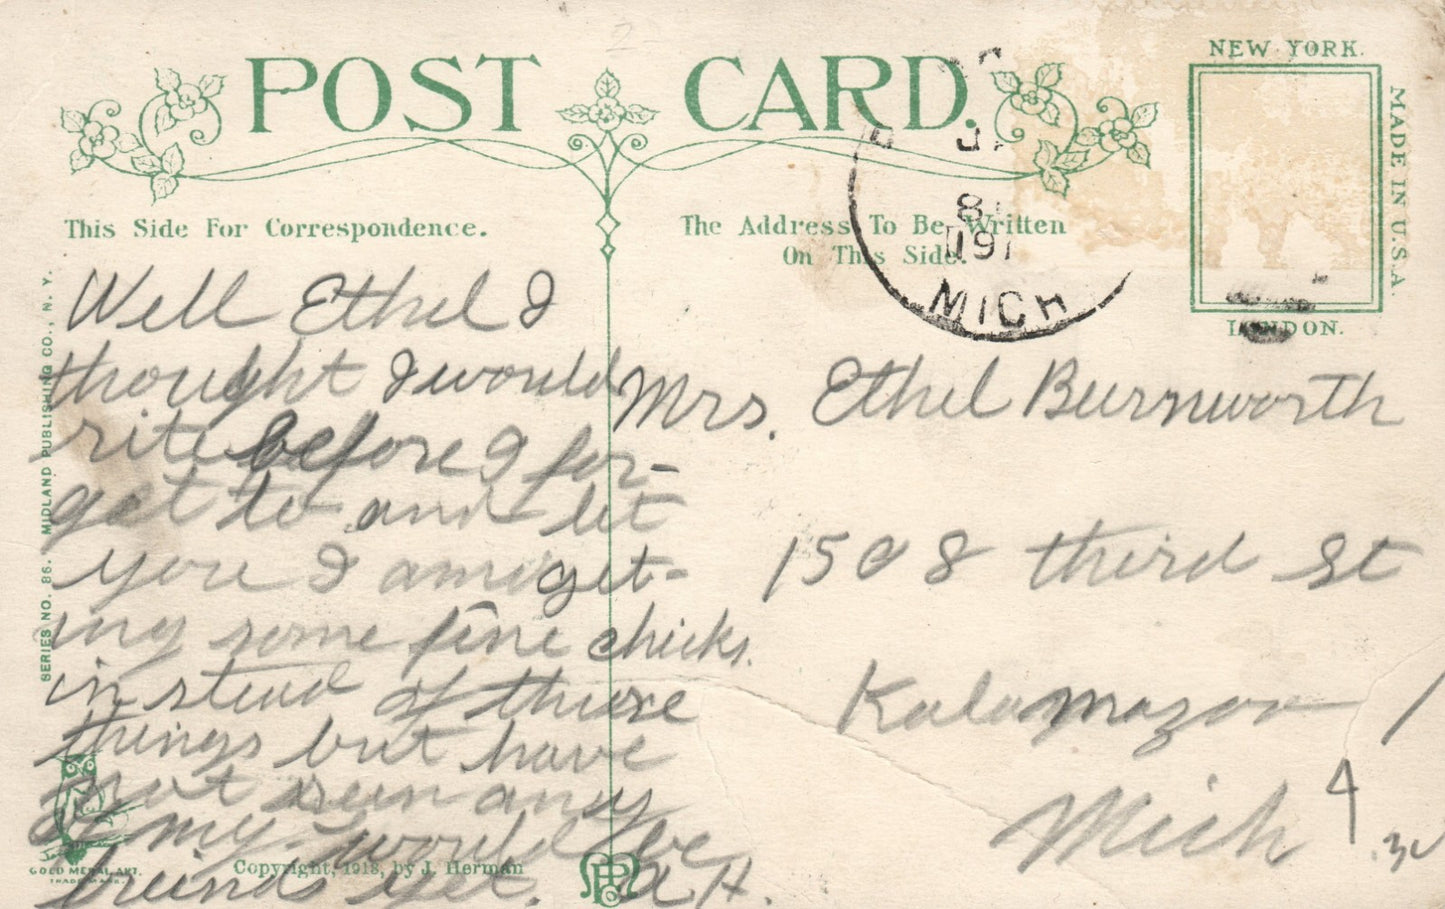 POST CARD.
NEW YORK.
MADE IN U.S.A.
LONDON.
This Side For Correspondence.
The Address To Be Written
On This Side.
8
191
MICH
SERIES NO. 86. MIDLAND PUBLISHING CO., N. Y.
Well Ethel I
thought I would
rite before I for-
get to and let
you I am get-
ing some fine chicks
instead of those
things but have
not seen any
of my would be
friends yet. A H.
Mrs. Ethel Burnworth
1508 third St
Kalamazoo
Mich
4
GOLD MEDAL ART.
TRADE MARK.
Copyright, 1913, by J. Herman